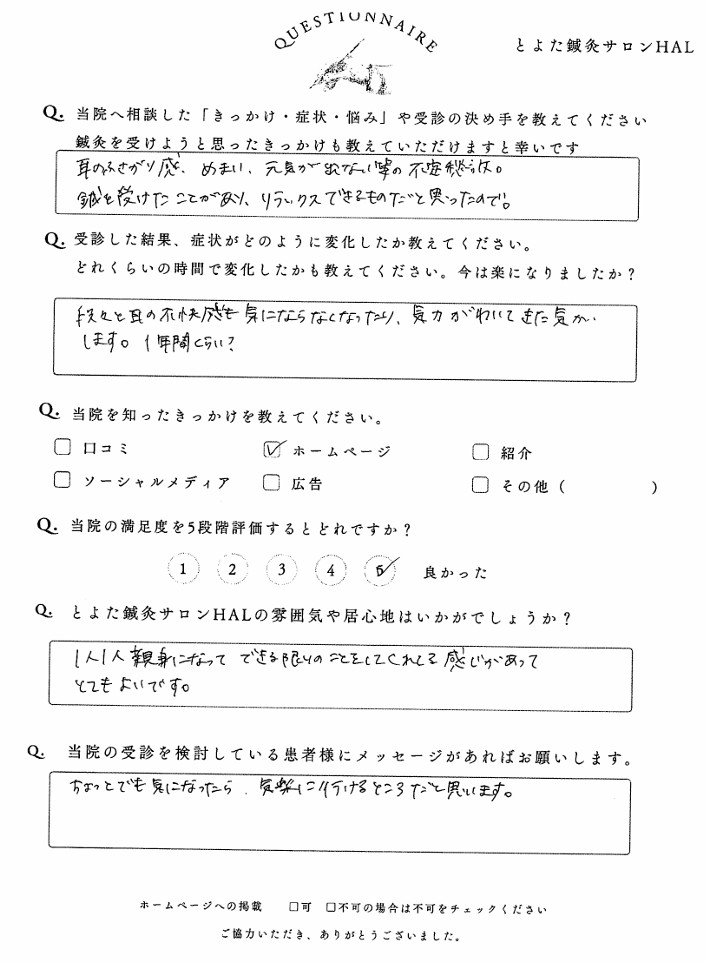 QUESTIONNAIRE
とよた鍼灸サロンHAL
Q. 当院へ相談した「きっかけ・症状・悩み」や受診の決め手を教えてください
鍼灸を受けようと思ったきっかけも教えていただけますと幸いです
耳のふさがり感、めまい、元気が出ない等の不定愁訴。
鍼を受けたことがあり、リラックスできるものだと思ったので。
Q. 受診した結果、症状がどのように変化したか教えてください。
どれくらいの時間で変化したかも教えてください。今は楽になりましたか？
段々と耳の不快感も気にならなくなったり、気力がわいてきた気が
します。1年間くらい？
Q. 当院を知ったきっかけを教えてください。
口コミ ホームページ 紹介
ソーシャルメディア 広告 その他（ ）
Q. 当院の満足度を5段階評価するとどれですか？
1 2 3 4 5 良かった
Q. とよた鍼灸サロンHALの雰囲気や居心地はいかがでしょうか？
1人1人親身になってできる限りのことをしてくれてる感じがあって
とてもよいです。
Q. 当院の受診を検討している患者様にメッセージがあればお願いします。
ちょっとでも気になったら、気楽に行けるところだと思います。
ホームページへの掲載 □可 □不可の場合は不可をチェックください
ご協力いただき、ありがとうございました。